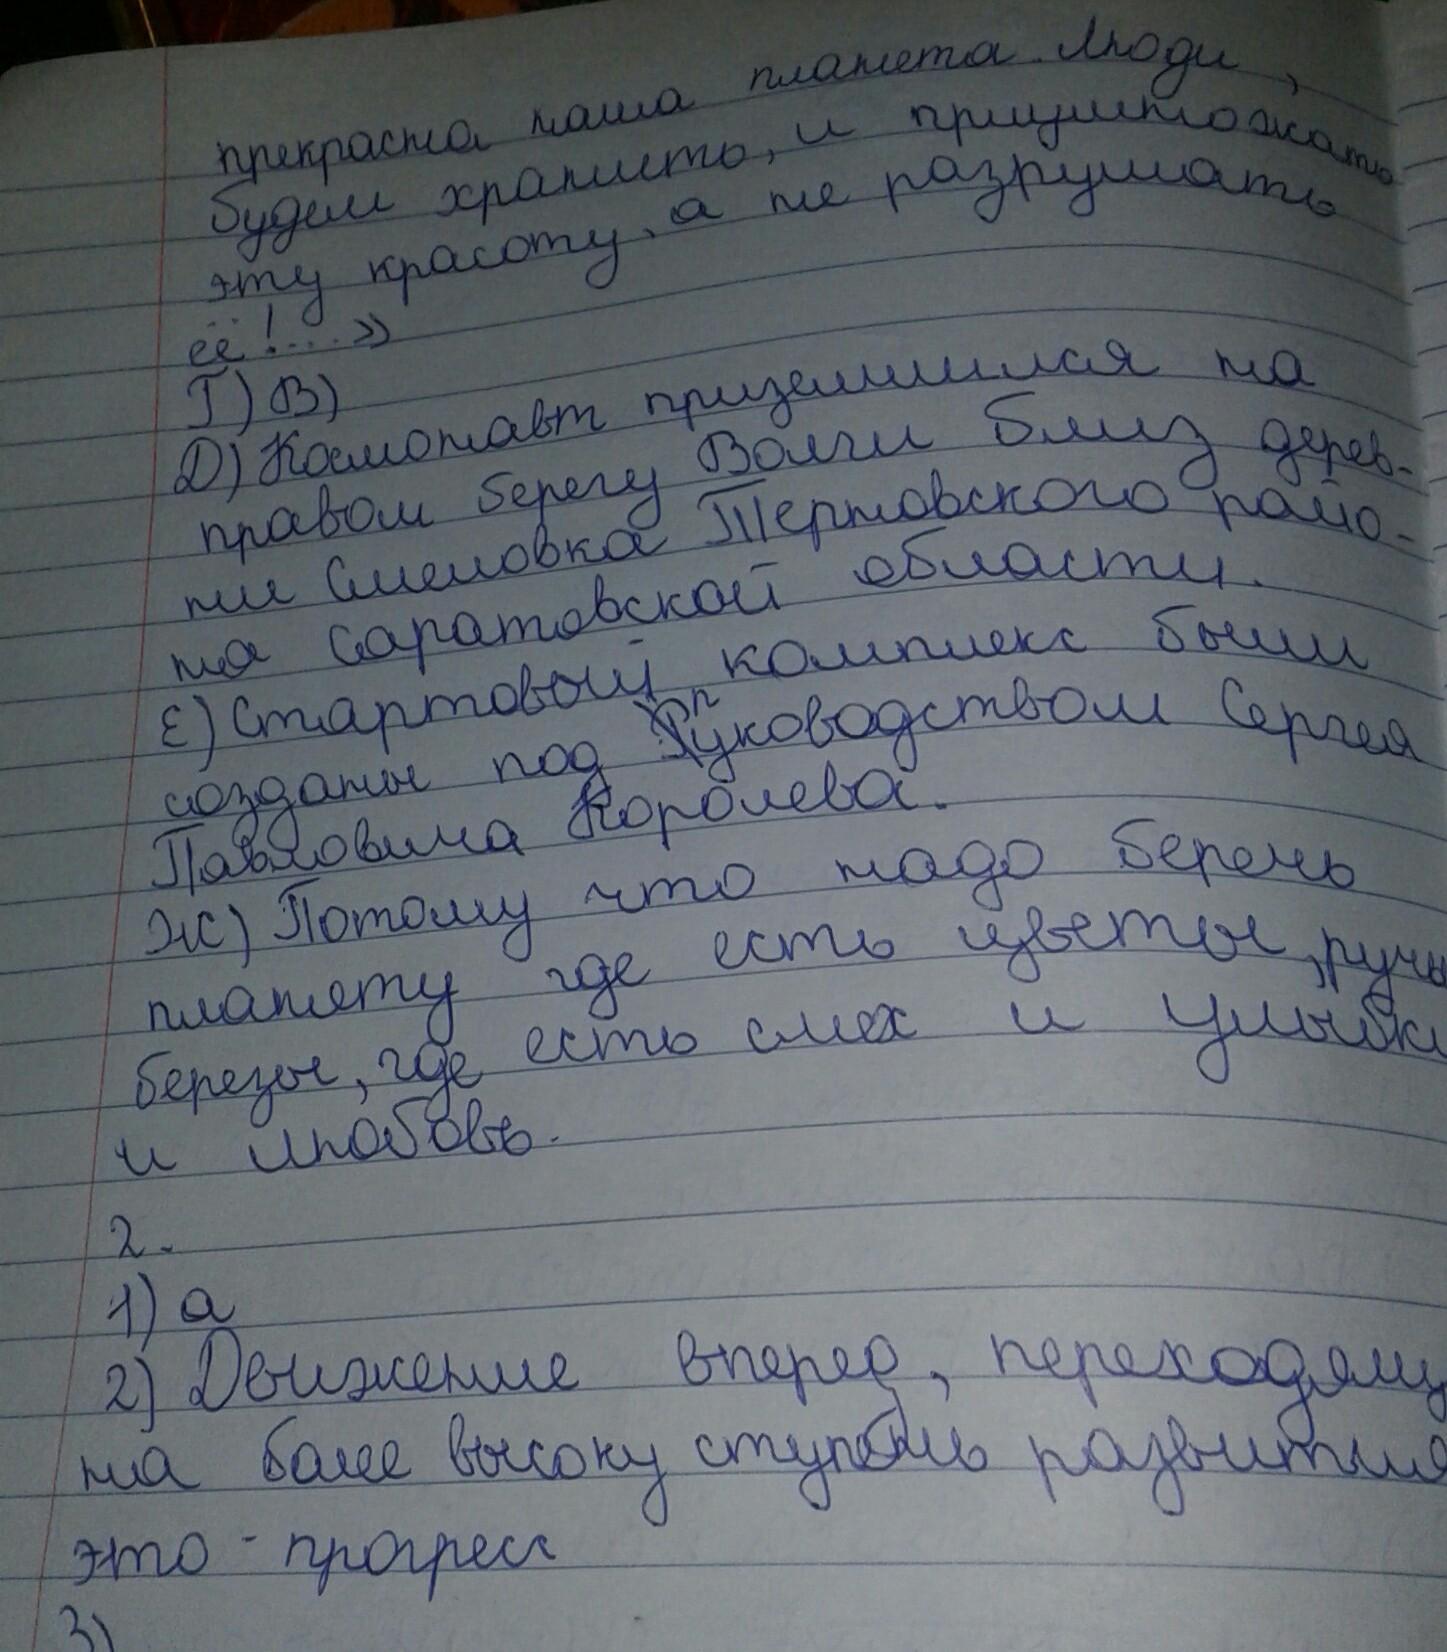 прекрасна наша планета. Люди,
будем хранить, и приумножать
эту красоту, а не разрушать
её!...»
Г) В)
Д) Космонавт приземлился на
правом берегу Волги близ дерев-
ни Смеловка Терновского райо-
на Саратовской области.
Е) Стартовый комплекс были
созданы под руководством Сергея
Павловича Королева.
Ж) Потому что надо беречь
планету где есть цветы, ручь
березы, где есть смех и улыбки
и любовь.
2.
1) а
2) Движение вперед, переходящу
на более высоку ступень развития
это - прогресс
3)